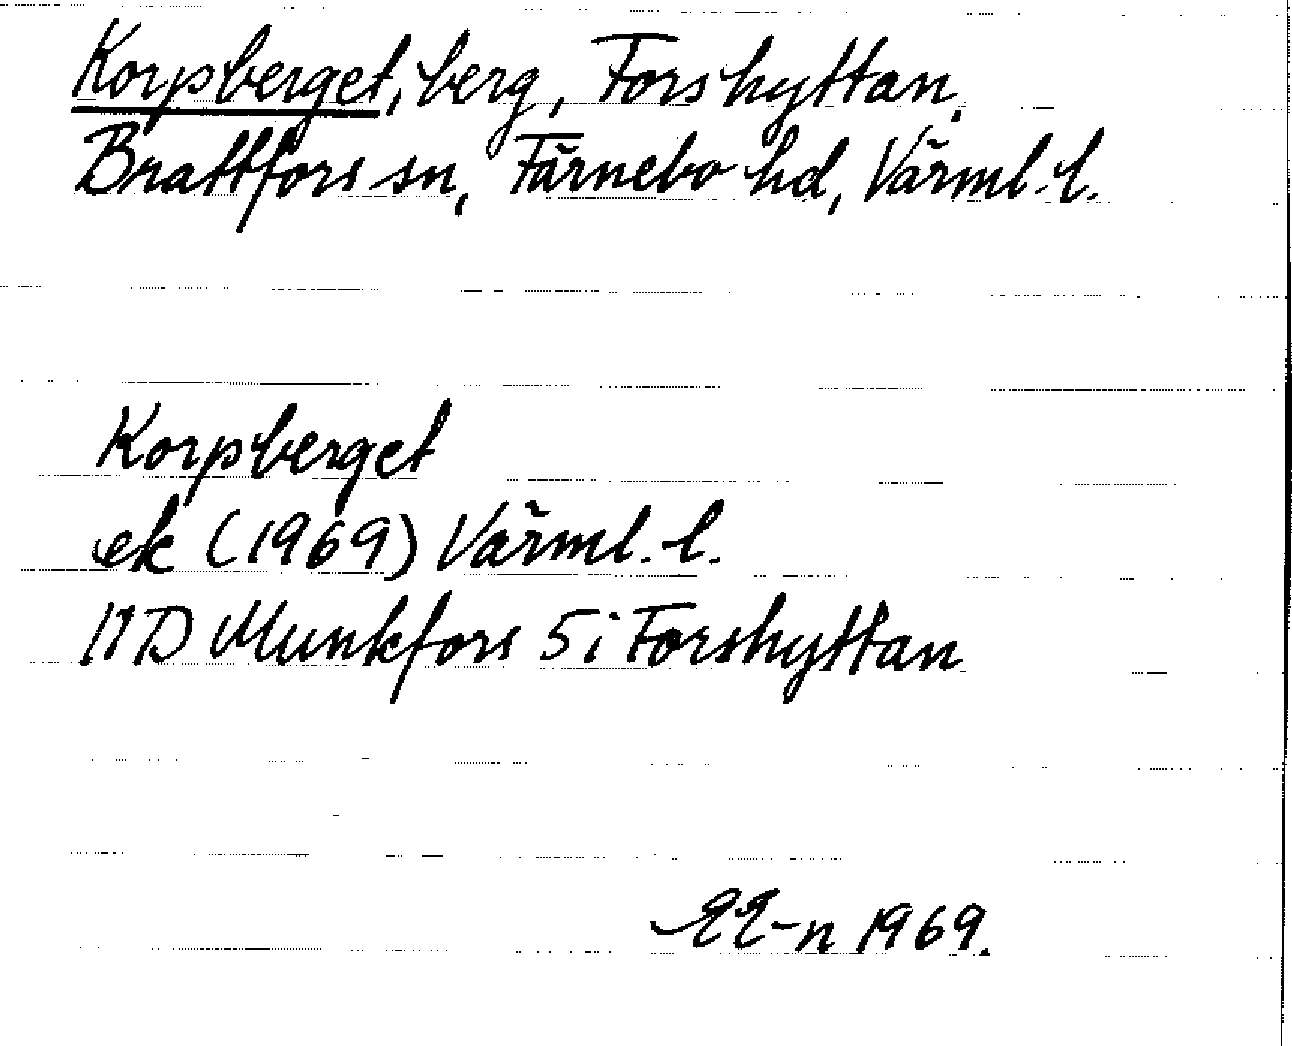 Korpberget, berg, Forshyttan,
Brattfors sn, Färnebo hd, Värml. l.
Korpberget
ek (1969) Värml. l.
11D Munkfors 5 i Forshyttan
EE-n 1969.